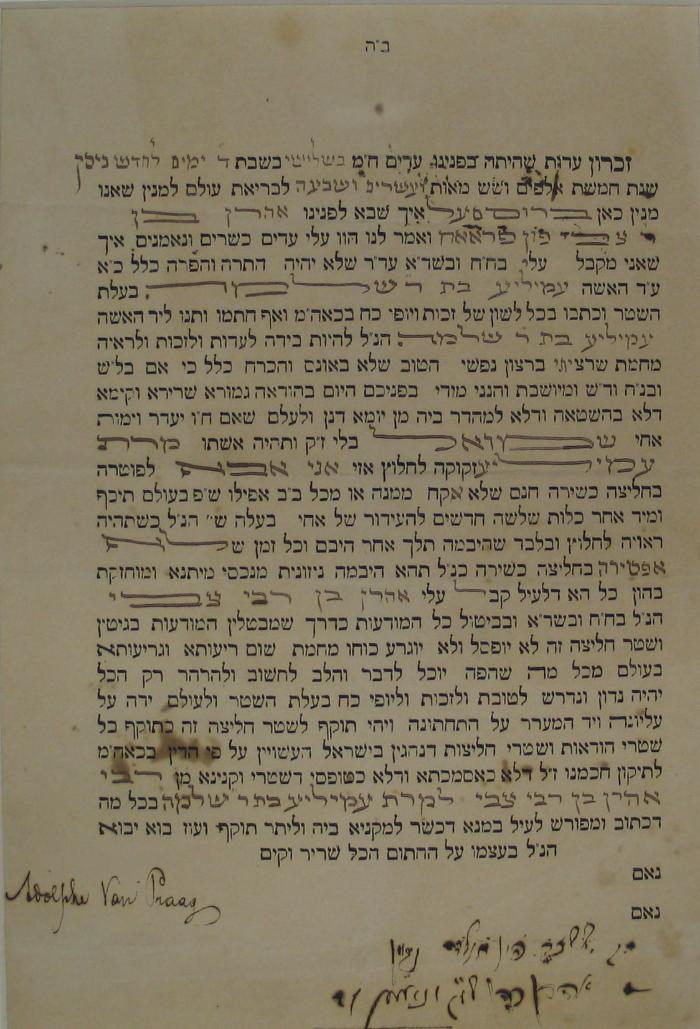 ב״ה
זכרון עדות שהיתה בפנינו עדים ח״מ בשלישי בשבת ד ימים לחדש ניסן
שנת חמשת אלפים ושש מאות ועשרים ושבעה לבריאת עולם למנין שאנו
מנין כאן ברוססעל איך שבא לפנינו אהרן בן
ר צבי פון פראאח ואמר לנו הוו עלי עדים כשרים ונאמנים איך
שאני מקבל עלי בח״ח ובשד״א עד״ר שלא יהיה התרה והפרה כלל כ״א
ע״ד האשה עמיליע בת ר שלמה בעלת
השטר וכתבו בכל לשון של זכות ויופי כח בכאה״מ ואף חתמו ותנו ליד האשה
עמיליע בת ר שלמה הנ״ל להיות בידה לעדות ולזכות ולראיה
מחמת שרציתי ברצון נפשי הטוב שלא באונס והכרח כלל כי אם בל״ש
ובנ״ח וד״ש ומיושבת והנני מודי בפניכם היום בהודאה גמורא שרירא וקימא
דלא בהשטאה ודלא למהדר ביה מן יומא דנן ולעלם שאם ח״ו יעדר וימות
אחי שמואל בלי ז״ק ותהיה אשתו מרת
עמיליע זקוקה לחלוץ אזי אני לפוטרה
בחליצה כשירה חנם שלא אקח ממנה או מכל ב״ב אפילו ש״פ בעולם תיכף
ומיד אחר כלות שלשה חדשים להעידור של אחי בעלה ש׳ הנ״ל כשתהיה
ראויה לחלוץ ובלבד שהיבמה תלך אחר היבם וכל זמן שלא
אפטירה בחליצה כשירה כנ״ל תהא היבמה ניזונית מנכסי מיתנא ומוחזקת
בהון כל הא דלעיל קבל עלי אהרן בן רבי צבי
הנ״ל בח״ח ובשר״א ובביטול כל המודעות כדרך שמבטלין המודעות בגיטין
ושטר חליצה זה לא יופסל ולא יוגרע כוחו מחמת שום ריעותא וגריעותא
בעולם מכל מה שהפה יוכל לדבר והלב לחשוב ולהרהר רק הכל
יהיה נדון ונדרש לטובת ולזכות וליופי כח בעלת השטר ולעולם ידה על
עליונה ויד המערר על התחתונה ויהי תוקף לשטר חליצה זה כתוקף כל
שטרי הודאות ושטרי חליצות דנהגין בישראל העשויין על פי הדין בכאה״מ
לתיקון חכמנו ז״ל דלא כאסמכתא ודלא כטופסי דשטרי וקנינא מן רבי
אהרן בן רבי צבי למרת עמיליע בת ר שלמה בכל מה
דכתוב ומפורש לעיל במנא דכשר למקניא ביה וליתר תוקף ועוז בוא יבוא
הנ״ל בעצמו על החתום הכל שריר וקים
נאם
Adolphe Van Praag
נאם